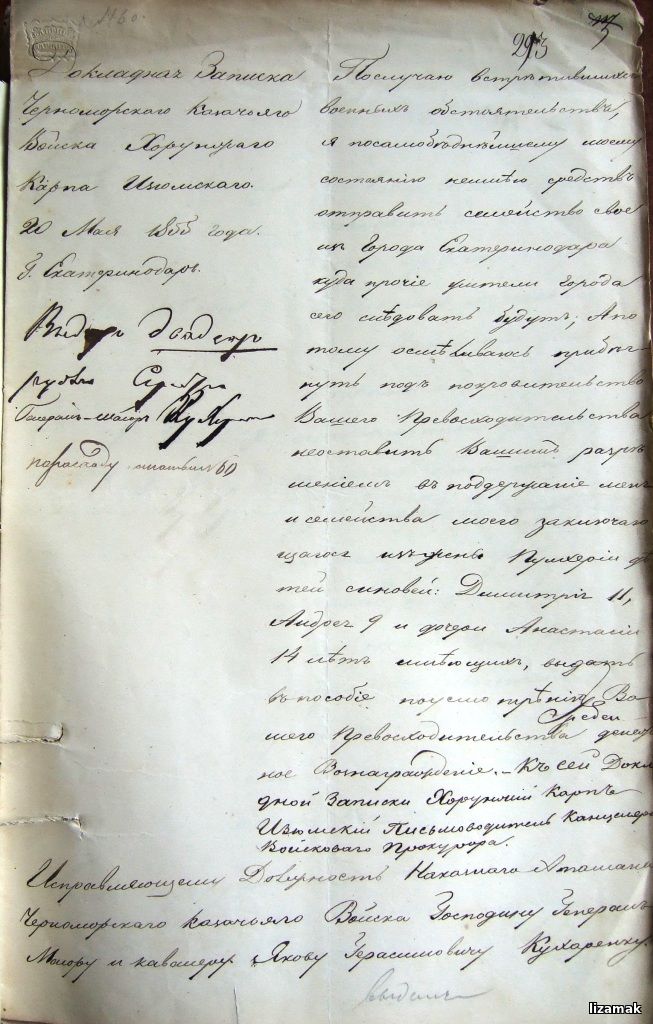 293
Докладная Записка
Черноморскаго казачьяго
Войска Хорунжаго
Карпа Изюмскаго.
20 Мая 1855 года.
Г. Екатеринодаръ.
двадцать
рублей Серебр
Генералъ-Маіоръ Кухаренко
По случаю встретившихся
военныхъ обстоятельствъ,
я по самобѣднѣйшему моему
состоянію неимѣю средствъ
отправить семейство свое
изъ Города Екатеринодара
куда прочіе жители города
сего слѣдовать будутъ; А по
тому осмѣливаюсь прибѣг
нуть подъ покровительство
Вашего Превосходительства
неоставить Вашимъ разрѣ
шеніемъ въ поддержаніе меня
и семейства моего заключаю
щагося изъ жены Пулхеріи дѣ
тей синовей: Димитрія 11,
Андрея 9 и дочери Анастасіи
14 лѣтъ имѣющихъ, выдать
въ пособіе поусмотрѣнію Ва
шего Превосходительства денеж
ное Вознагражденіе. – Къ сей Докла
дной Записки Хорунжій Карпъ
Изюмскій Письмоводитель Канцеляріи
Войсковаго Прокурора.
Исправляющему Должность Наказнаго Атамана
Черноморскаго казачьяго Войска Господину Генералъ
Маіору и кавалеру Якову Герасимовичу Кухаренку.
lizamak